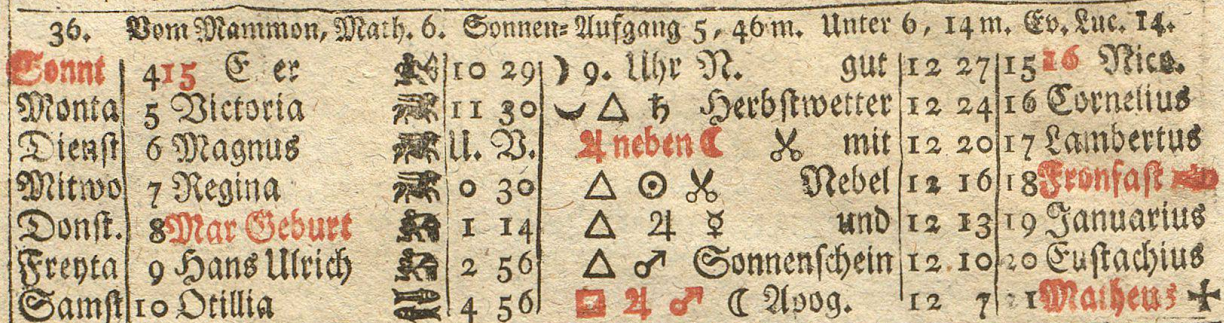 36. Vom Mammon, Math. 6. Sonnen-Aufgang 5, 46 m. Unter 6, 14 m. Ev. Luc. 14.
Sonnt 4 15 10 29 ☽ 9. Uhr N. gut 12 27 15 16 Nico.
Monta 5 Victoria 11 30 △ ♄ Herbstwetter 12 24 16 Cornelius
Dienst 6 Magnus U. V. ♃ neben ☾ ✂ mit 12 20 17 Lambertus
Mitwo 7 Regina 0 30 △ ☉ ✂ Nebel 12 16 18 Fronfast
Donst. 8 Mar Geburt 1 14 △ ♃ ☿ und 12 13 19 Januarius
Freyta 9 Hans Ulrich 2 56 △ ♂ Sonnenschein 12 10 20 Eustachius
Samst 10 Otillia 4 56 □ ♃ ♂ ☾ Apog. 12 7 21 Matheus ✠